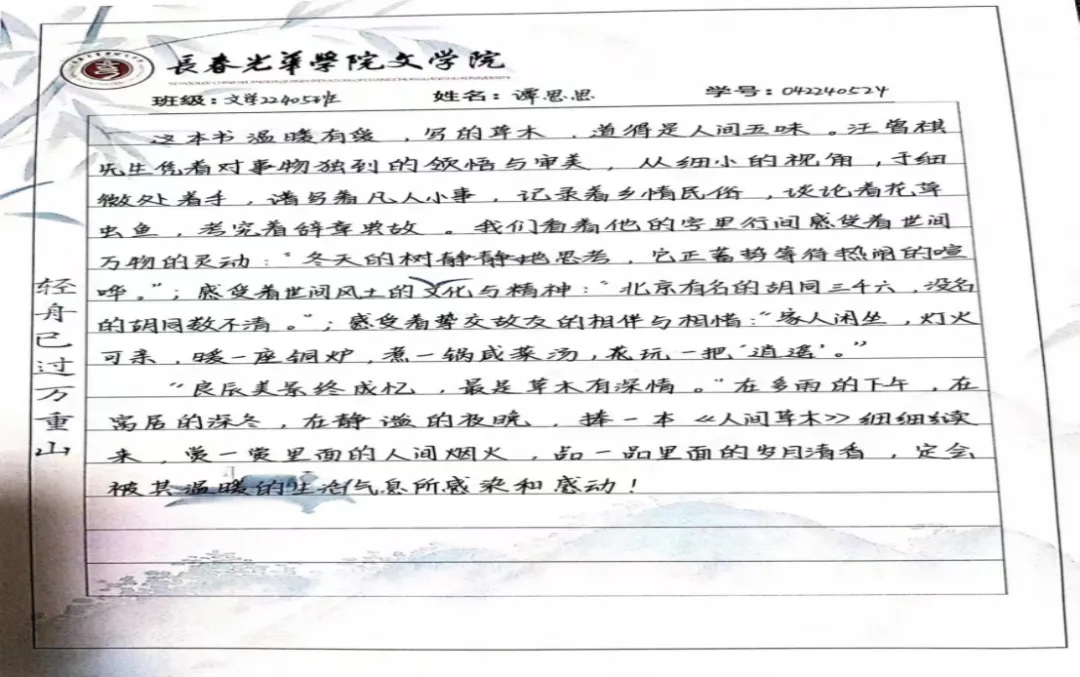 長春光華學院文学院
班级:文学22405班 姓名:谭思思 学号:042240524
这本书温暖有爱,写的草木,道得是人间五味。汪曾祺
先生凭着对事物独到的领悟与审美,从细小的视角,于细
微处着手,谱写着凡人小事,记录着乡情民俗,谈论着花草
虫鱼,考究着辞章典故。我们看着他的字里行间感受着世间
万物的灵动:“冬天的树静静地思考,它正蓄势等待热闹的喧
哗。”;感受着世间风土的文化与精神:“北京有名的胡同三千六,没名
的胡同数不清。”;感受着挚交故友的相伴与相惜:“家人闲坐,灯火
可亲,暖一座铜炉,煮一锅咸菜汤,花玩一把‘逍遥’。”
“良辰美景终成忆,最是草木有深情。”在多雨的下午,在
寓居的深冬,在静谧的夜晚,捧一本《人间草木》细细读
来,赏一赏里面的人间烟火,品一品里面的岁月清香,定会
被其温暖的生活气息所感染和感动!
轻舟已过万重山